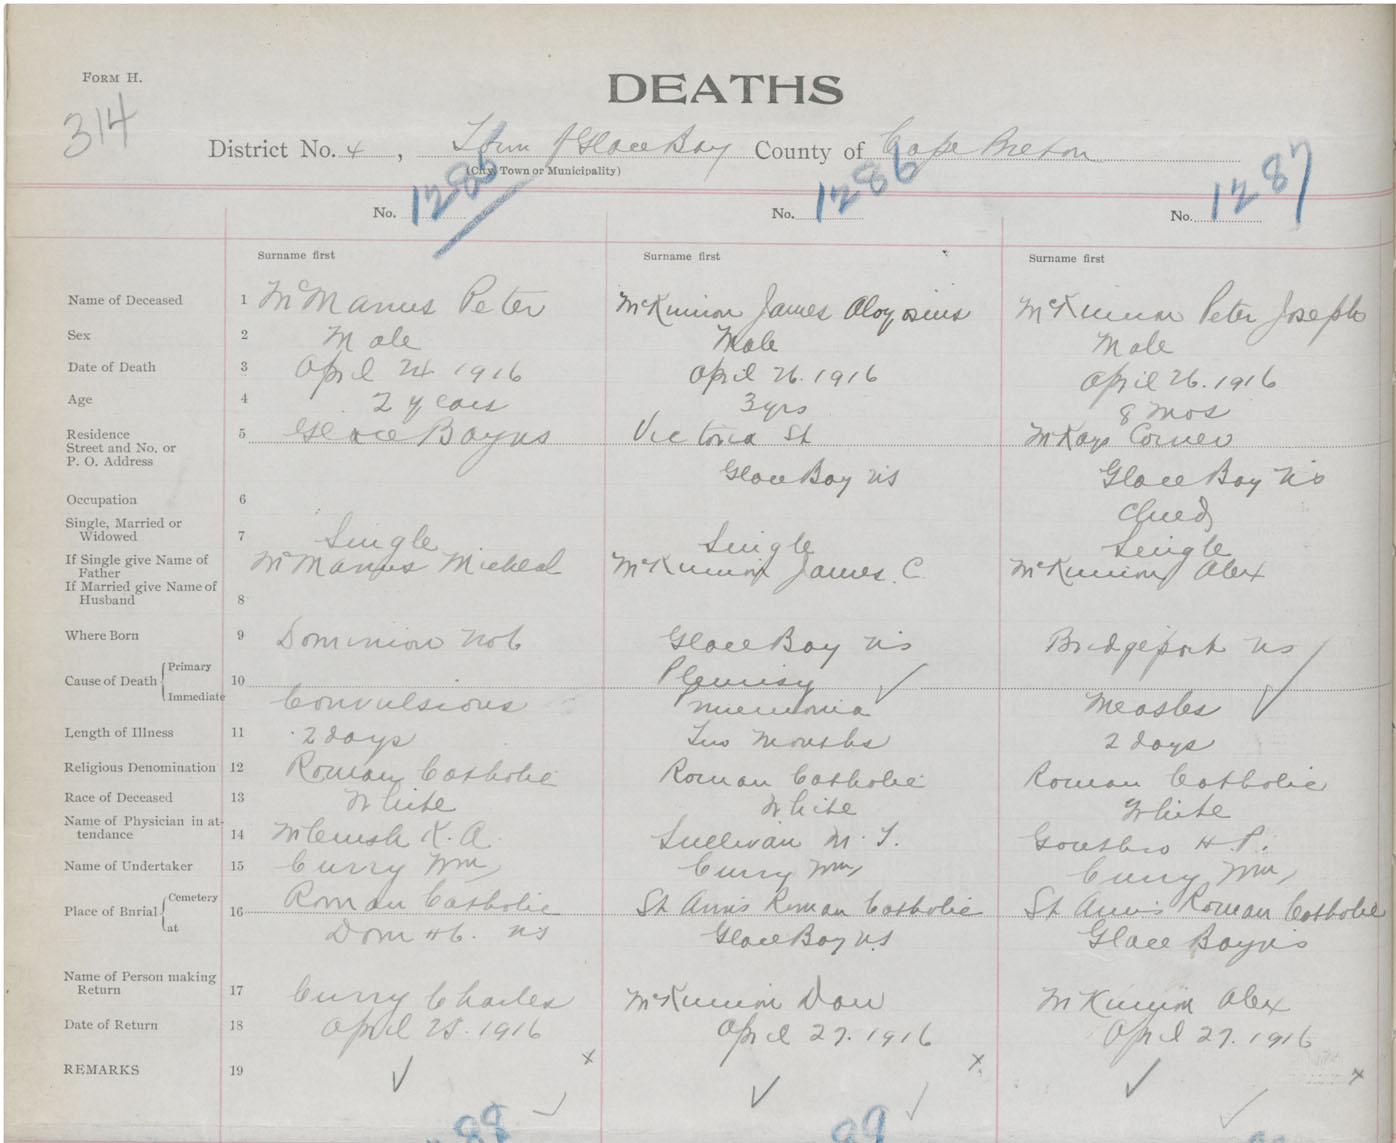 FORM H.
DEATHS
314
District No. 4, Town of Glace Bay County of Cape Breton
(City, Town or Municipality)
No. 1285 No. 1286 No. 1287
Surname first Surname first Surname first
Name of Deceased 1 McManus Peter McKinnon James Aloysius McKinnon Peter Joseph
Sex 2 Male Male Male
Date of Death 3 April 24 1916 April 26. 1916 April 26. 1916
Age 4 2 years 3 yrs 8 mos
Residence 5 Glace Bay NS Victoria St McKays Corner
Street and No. or
P. O. Address Glace Bay NS Glace Bay NS
Occupation 6 Child
Single, Married or
Widowed 7 Single Single Single
If Single give Name of
Father McManus Micheal McKinnon James. C. McKinnon Alex
If Married give Name of
Husband 8
Where Born 9 Dominion No 6 Glace Bay NS Bridgeport NS
Cause of Death Primary 10 Pleurisy
Immediate Convulsions Pneumonia Measles
Length of Illness 11 2 days Two Months 2 days
Religious Denomination 12 Roman Catholic Roman Catholic Roman Catholic
Race of Deceased 13 White White White
Name of Physician in at-
tendance 14 K. A. Sullivan M. T. Gouthro H P.
Name of Undertaker 15 Curry Wm Curry Wm Curry Wm
Place of Burial Cemetery 16 Roman Catholic St Ann's Roman Catholic St Ann's Roman Catholic
at Dom #6. NS Glace Bay NS Glace Bay NS
Name of Person making
Return 17 Curry Charles McKinnon Dan McKinnon Alex
Date of Return 18 April 25. 1916 April 27. 1916 April 27. 1916
REMARKS 19 x x x
88 89